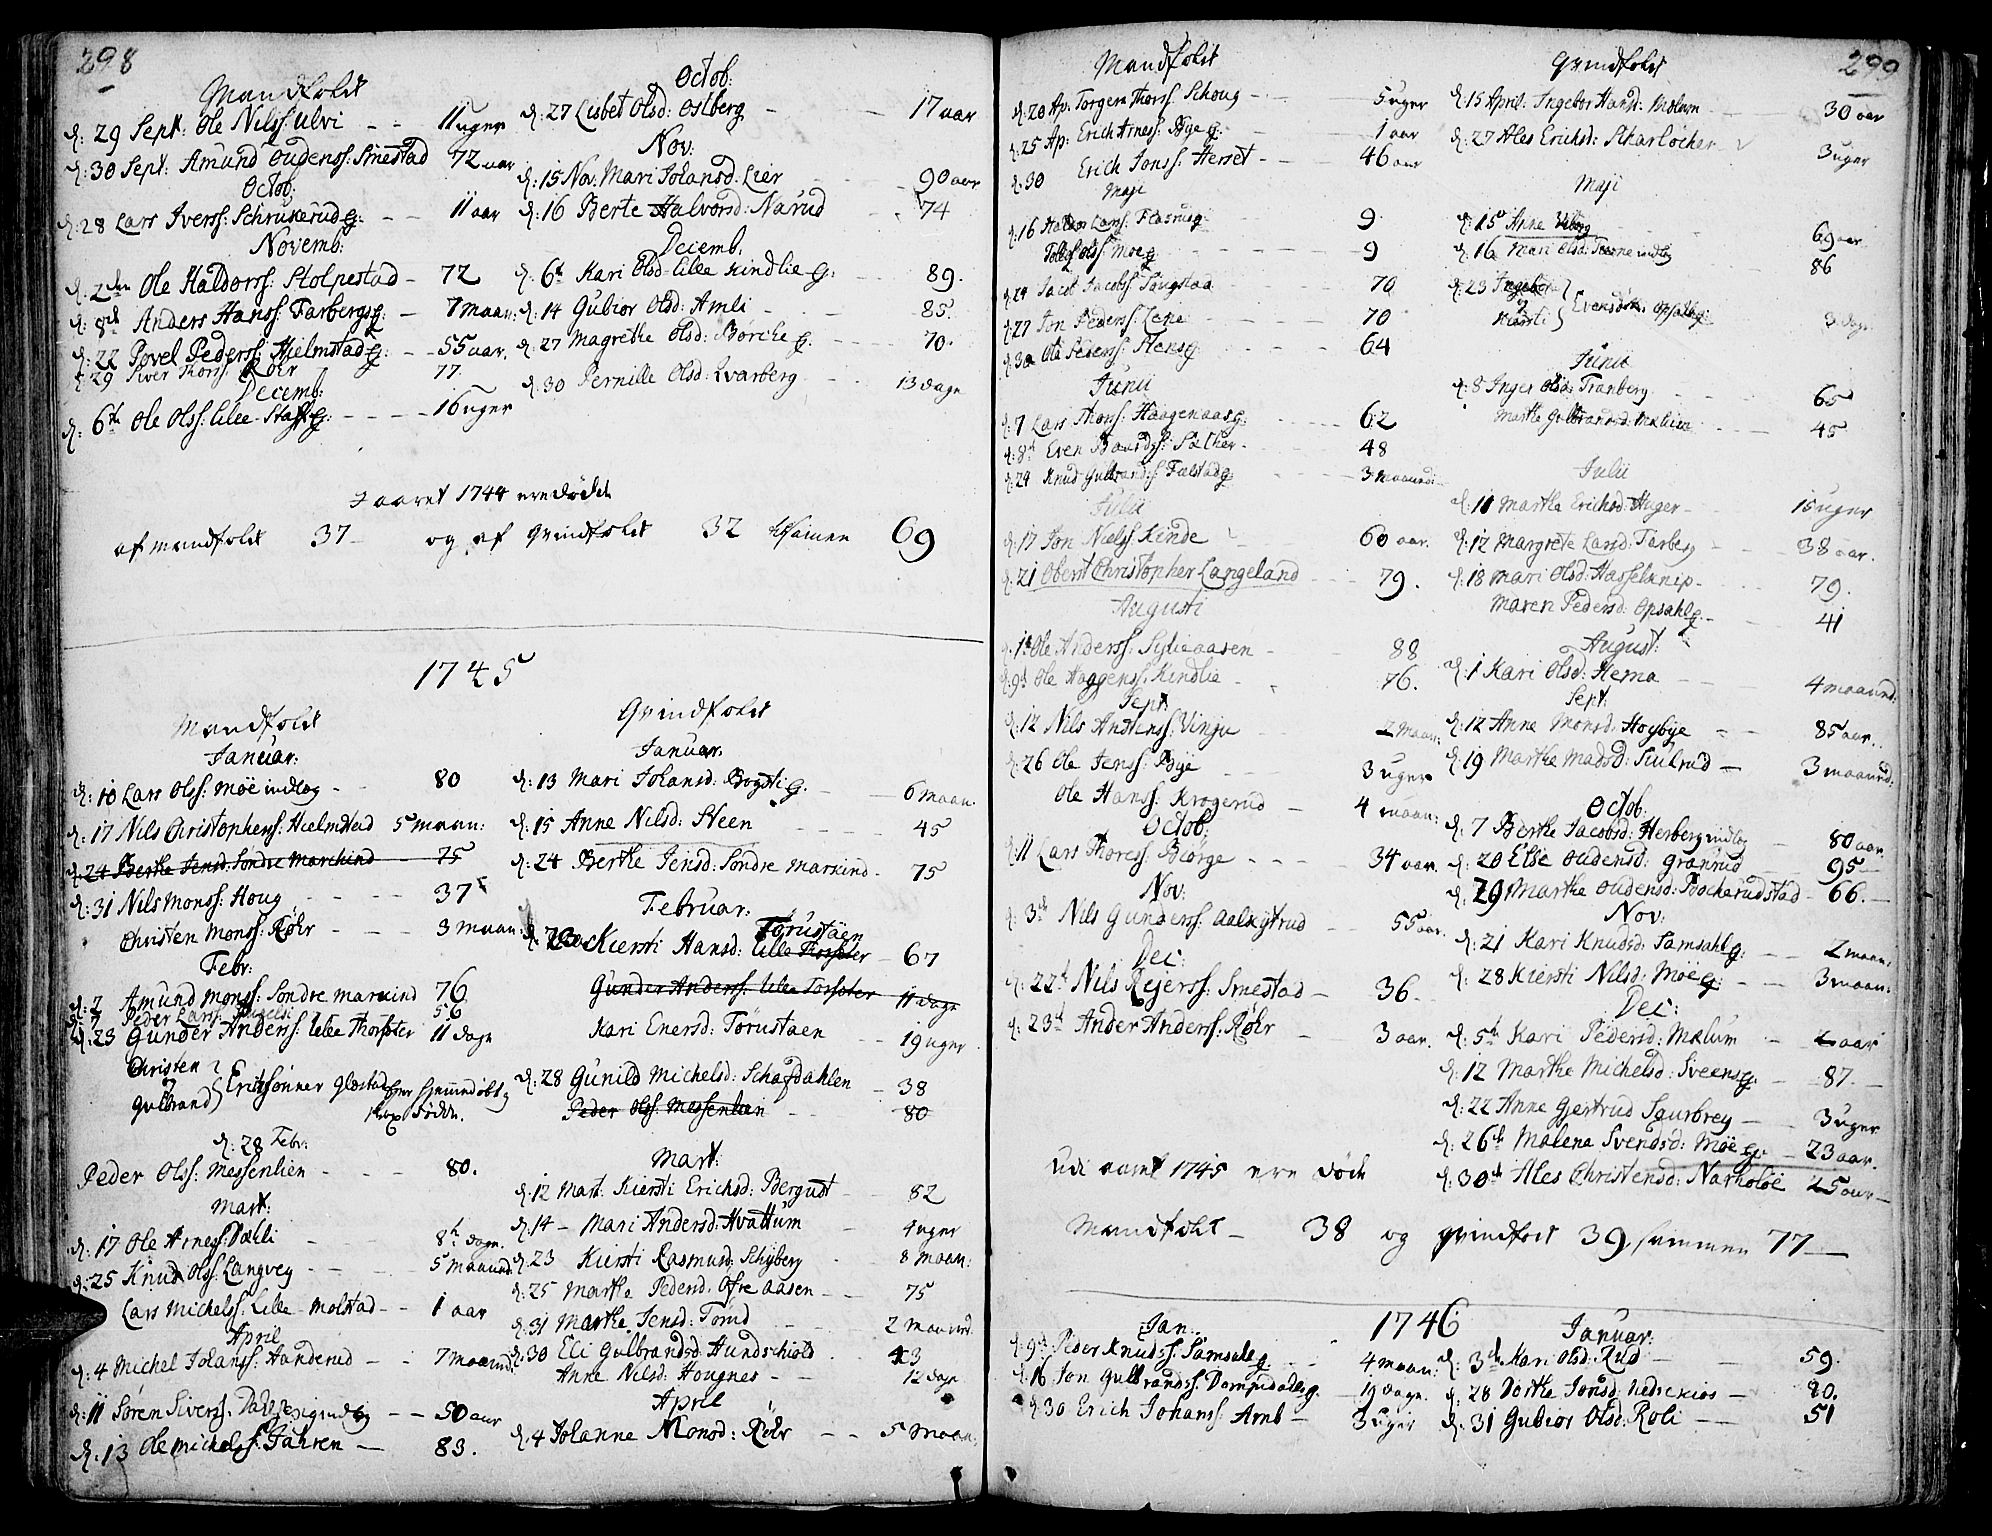 298
Mandfolck
d: 29 Sept: Ole Nilss: Ulvi - - 11 uger
d: 30 Sept: Amund Oudenss: Smestad 72 aar
Octob:
d: 28 Lars Iverss: Schrukerud g: - - 11 aar
Novemb:
d: 2den Ole Haldorss: Stolpestad - 72
d: 8de Anders Hanss: Farbergsg: - 7 maan:
d: 22 Povel Pederss: Hielmstad g: - 55 aar.
d: 29 Siver Thorss: Röhr 77.
Decemb:
d: 6te Ole Olss: lille Staff g: - - - - 16 uger
Octob:
d: 27 Lisbet Olsd: Ostberg - - 17 aar
Nov:
d: 15 Nov. Mari Iolansd: Lier - - 90 aar
d: 16 Berte Halvorsd: Narud - 74
Decemb.
d: 6te Kari Olsd: lille Kindlie g: - 89.
d: 14 Gubior Olsd: Amli - - 85.
d: 27 Magrethe Olsd: Börche g. - - 70.
d: 30 Pernille Olsd: Qvarberg - - 13 dage
I aaret 1744 ere döde
af mandfolck 37 - og af Qvindfolck 32 tilsamen 69
1745
Mandfolck
Januar:
d: 10 Lars Olss: Möe indlog - - 80
d: 17 Nils Christophers: Hielmstad 5 maan:
d: 24 Berthe Jensd: Söndre Marckind - 75
d: 31 Nils Monss: Houg - - - - 37
Christen Monss: Röhr - - - 3 maan:
Febr:
d: 2 Amund Monss: Söndre markind 76
d: 7 Peder Larss: 56
d: 23 Gunder Anderss: lille Thorsoter 11 dage
Christen }
Gulbrand } Erichsönner Glæstad hiemmedöbt og
döde.
d: 28 Febr:
Peder Olss: Messenlien - - - 80.
Mart:
d: 17 Ole Arness: Dæhli - - 8te dage.
d: 25 Knud Olss: Langvey - - - 5 maaned.
Lars Michelss: Lille - Molstad - - 1 aar
April
d: 4 Michel Iolanss: Handerud - - 7 maaned
d: 11 Sören Siverss: Dahl indlog - - 50 aar
d: 13 Ole Michelss: Jahren - 83.
Qvindfolck
Januar:
d: 13 Mari Iohansd: Bogsti g. - - 6 maan.
d: 15 Anne Nilsd: Steen - - - - 45
d: 24 Berthe Jensd: Söndre markind - 75
Februar:
Törustaen
d: Kiersti Hansd: lille Thorsoter - 67
Gunder Anderss: lille Torsoter 11 dage
Kari Enersd: Törustaen - - 19 uger
d: 28 Gunild Michelsd: Schafdahlen - 38
Peder Olss: Messenlien - - 80
Mart:
d: 12 Mart Kiersti Erichsd: Bergust - - 82
d: 14 - Mari Andersd: Hvattum - 4 uger
d: 23 Kiersti Rasmusd: Schyberg - 8 maan:
d: 25 Marthe Pedersd. Ofre Aasen - - 75
d: 31 Marthe Jensd: Torud - - 2 maaned
d: 30 Eli Gulbrandsd: Hundschiold - 43
Anne Nilsd: Hougnes - - 12 dage
April
d: 4 Iolanne Monsd: Röhr - - 5 maan:
299
Mandfolck
d: 20 Ap: Torger Thorss: Schoug - - - 5 uger
d: 25 Ap: Erich Arness: Bye g. - - 1 aar
d: 30 Erich Jonss: Herset - - - 46 aar
Maji
d: 16 Haldor Larss: Flasrug - - - 9
Tollef Olss: Moe g - - - 9
d: 24 Jacob Jacobss: Taugstad - - - 70
d: 27 Jon Pederss: Lene - - - 70
d: 30 Ole Pederss: Stensg - - - 64
Junii
d: 7 Lars Thorss: Haagenaas g: - - - 62
d: 8de Even Baardss: Sæther - - - 48
d: 24 Knud Gulbrandss: Falstad g. - - - 3 maaneder
Julii
d: 17 Jon Nielss: Kinde - - 60 aar.
d: 21 Oberst Christopher Langeland - - 79.
Augusti
d. 1te Ole Anderss: Syljeaasen - - 88
d: 9de Ole Haggenss: Kindlie - - 76.
Sept:
d: 12 Nils Andersss: Vinju - - 2 maan:
d: 26 Ole Jenss: Bye - - - 3 uger
Ole Hanss: Krogerud - 4 maan:
Octob:
d: 11 Lars Thoress: Börge - - - - 34 aar.
Nov:
d: 3de Nils Gunderss: Aalkytrud - 55 aar.
Dec:
d: 22de Nils Rejerss: Smestad - 36 -
d: 23de Ander Anderss: Röhr - - 3 aar.
Qvindfolck
d: 15 April: Ingebor Hansd: Molum - - - 30 aar
d: 27 Ales Erichsd: Skarlocher - 3 uger
Maji
d: 15 Anne Viborg - - - - 69 aar
d: 16 Mari Olsd: Teerne indlog - - 86
d: 23 Ingebor }
Kiersti } Evensdöttr: Opsalbg. 3 dage
Junii
d: 8 Inger Olsd: Tranberg - - - 65
Marthe Gulbrandsd: Mælum - - 45
Julii
d: 11 Marthe Erichsd: Huger - - 15 uger
d: 12 Margrete Larsd: Farberg - - - 38 aar.
d: 18 Mari Olsd: Hasselknip - - 79.
Maren Pedersd: Opsahl g. - - 41
August:
d: 1 Kari Olsd: Hema - - - 4 maaned:
Sept:
d: 12 Anne Monsd: Hoybye - - 85 aar.
d: 19 Marthe Madsd: Sulrud - 3 maaned:
Octob:
d: 7 Berthe Jacobsd: Herberg indlog - 80 aar.
d: 20 Else Oudensd: Grönrud - - 95 -
d: 29 Marthe Oudensd: Bocherudstad - 66. -
Nov:
d: 21 Kari Knudsd: Samsahl g. - - 2 maan:
d: 28 Kiersti Nilsd: Möe g. - - 3 maan:
Dec:
d: 5te Kari Pedersd: Mælum - - 2 aar
d: 12 Marthe Michelsd: Sveens g. - 87. -
d: 22 Anne Gjertrud Sgurbrey - - 3 uger
d: 26de Malene Svendsd: Möe g. - 23 aar.
d: 30te Ales Christensd: Narholöe 25 aar -
Udi aaret 1745 ere döde
Mandfolck - 38 og qvindfolck 39. summen 77 -
1746
Jan:
d: 9de Peder Knudss: Samsal g. - - 4 maan:
d: 16 Jon Gulbrandss: Dompidal g. - 19 dage.
d: 30 Erich Johanss: Arnb - - 3 uger
Januar:
d: 3de Kari Olsd: Rud - - 59.
d: 28 Dorthe Jonsd: Nedrekios - 80.
d: 31 Gubior Olsd: Roli - - 51